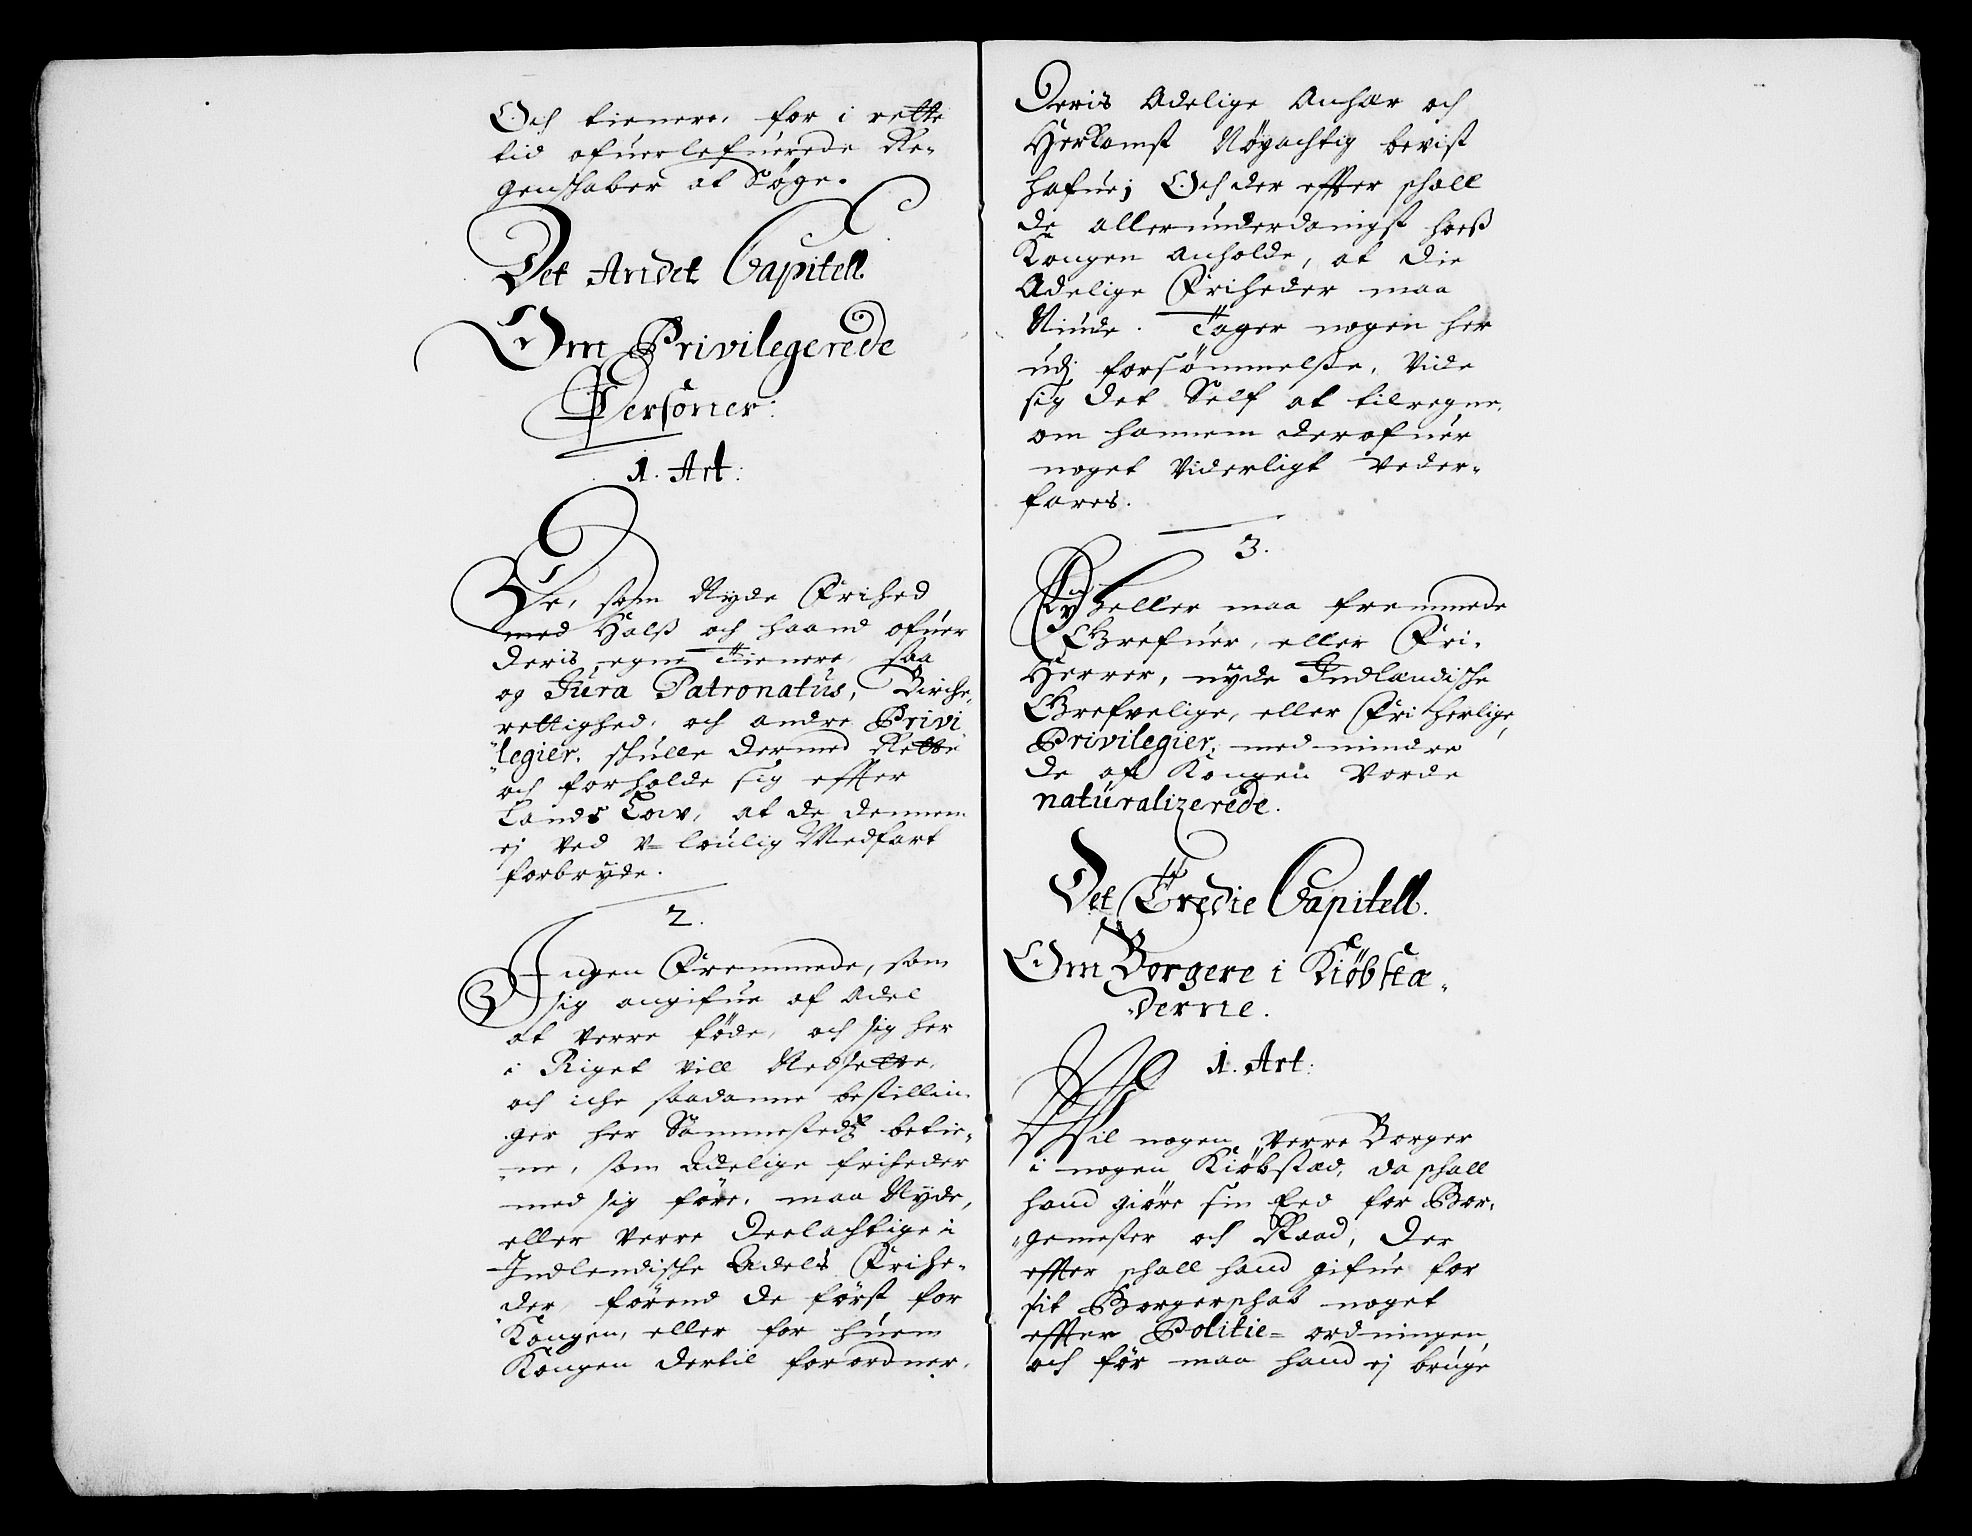 Och tienere, for i rette
tid ofuerlefuerede Re-
genschaber at Søge.
Det Andet Capitell
Om Privilegerede
Personer:
1. Art:
De, som Nyde Frihed
med Halß och haand ofuer
deris egne Tienere, saa
og Jura Patronatus, Birche,
rettighed, och andre Privi
legier, skulle dermed Rette
och forholde sig effter
Lands Low, at de dennem
ej ved v-loulig Medfart
forbryde.
2.
Ingen Fremmede, som
sig angifue af Adel
at verre føde, och sig her
i Riget vill Nedsette,
och iche saadanne bestillin
ger her Sammestedtz betie-
ne, som Adelige friheder
med sig føre, maa Nyde,
eller verre deelachtige i
Indlendische Adels Frihe-
der, førend de først for
Kongen, eller for huem
Kongen dertil forordner,
Deris Adelige Anhar och
Herkomst Nøyachtig bevist
hafue; Och der effter schall
de allerunderdanigst hoeß
Kongen anholde, at die
Adelige Friheder maa
Niude. Tager nogen her
udj forsømmelße, vide
sig det Self at tilregne,
om hannem derofuer
noget viderligt veder-
fares.
3.
Ey heller maa fremmede
Grefuer, eller Fri-
Herrer, nyde Indlandische
Grefvelige, eller Friherlige,
Privilegier, med mindre
de af Kongen vorde
naturalizerede.
Det Tredie Capitell.
Om Borgere i Kiøbstæ-
derne.
1. Art:
Wil nogen verre Borger
i nogen Kiøbstæd, da schall
hand giøre sin Eed for Bor-
gemester och Raad, Der
effter schall hand gifue for
sit Borgerschab noget
effter Politie-ordningen,
och før maa hand ej bruge